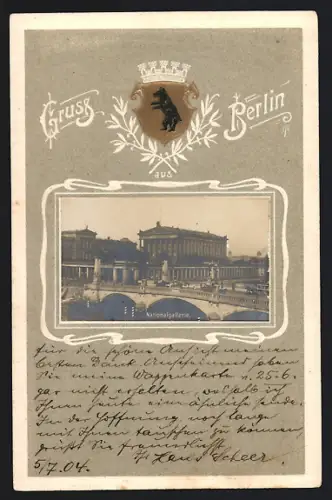 Gruss
aus
Berlin
Nationalgallerie.
für die schöne Ansicht meinen
besten Dank. Anscheinend haben
Sie meine Wappenkarte v. 25.6.
gar nicht erhalten, weshalb ich
Ihnen heute eine ähnliche sende.
In der Hoffnung noch lange
mit Ihnen tauschen zu können
grüßt Sie freundlichst
Hans Scheer.
5/7.04.